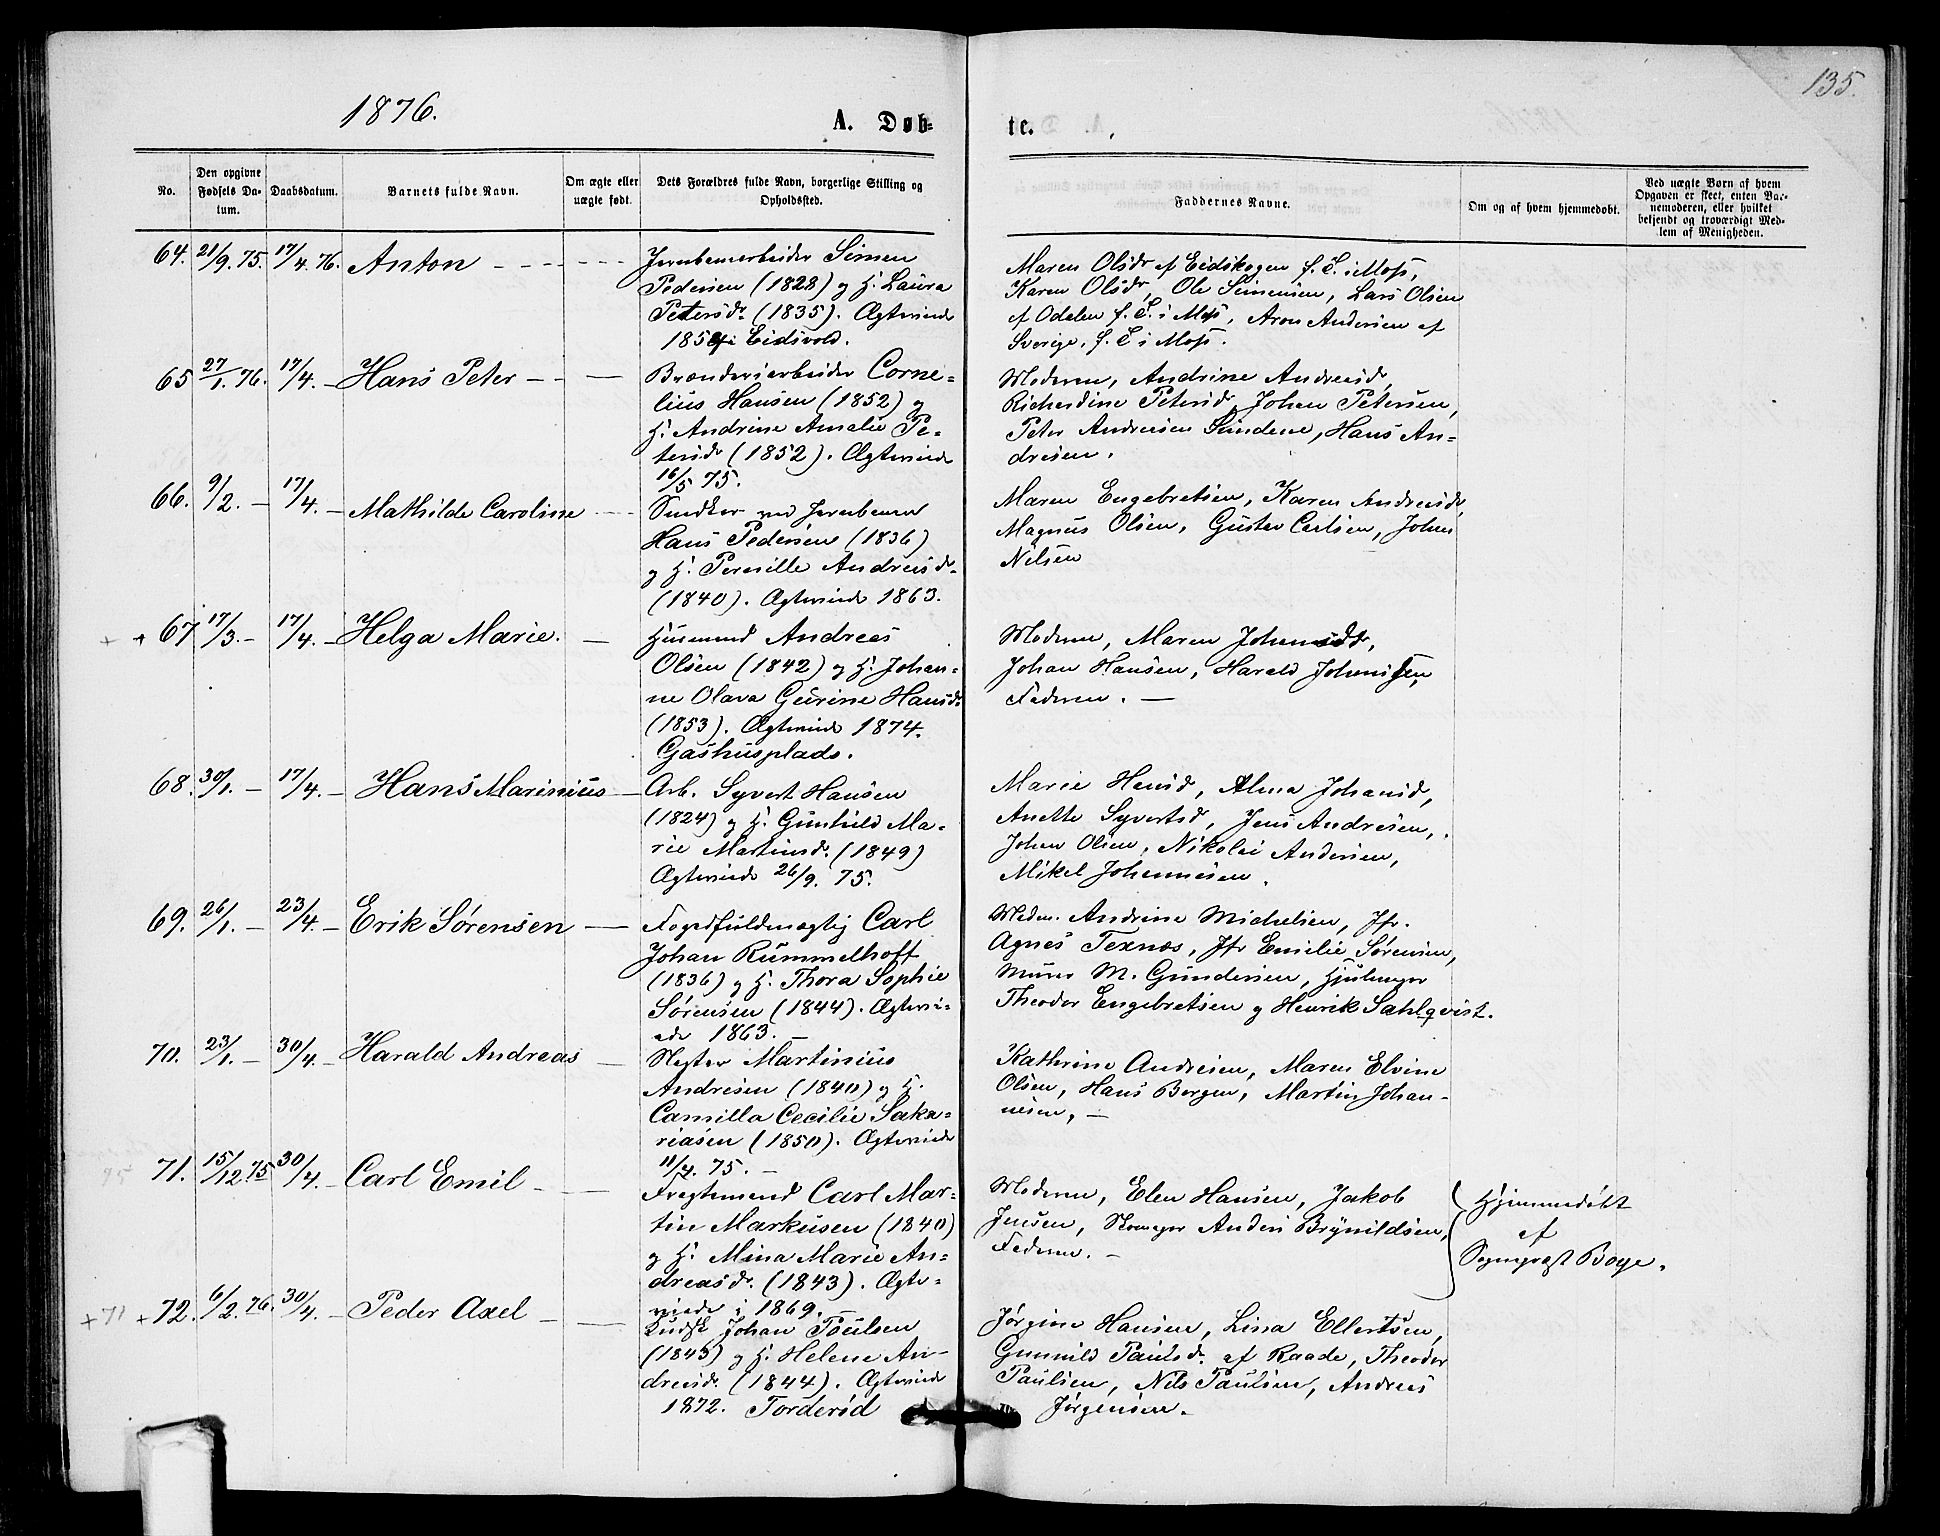 1876.
135.
A. Døb-
te.
No.
Den opgivne Fødsels Da-tum.
Daabsdatum.
Barnets fulde Navn.
Om ægte eller uægte født.
Dets Forældres fulde Navn, borgerlige Stilling og Opholdssted.
Faddernes Navne.
Om og af hvem hjemmedøbt.
Ved uægte Børn af hvem Opgaven er skeet, enten Bar-nemoderen, eller hvilket bekjendt og troværdigt Med-lem af Menigheden.
64. 21/9. 75. 17/4. 76. Anton
Jernbanearbeider Simen
Pedersen (1828) og H. Laura
Petersdr (1835). Ægteviede
i Eidsvold.
Maren Olsdr af Eidskogen f. T. i Moss,
Karen Olsdr, Ole Simensen, Lars Olsen
af Odalen f. T. i Moss, Aron Andersen af
Sverige, f. T. i Moss.
65 27/1. 76. 17/4. Hans Peter
Brænderiarbeider Corne-
lius Hansen (1852) og
H. Andrine Amalie Pe-
tersdr (1852). Ægteviede
16/5 75.
Moderen, Andrine Andreasd,
Richardine Petersd, Johan Petersen,
Peter Andresen Sundene, Hans An-
dresen.
66. 9/2. - 17/4. - Mathilde Caroline
Snedker ved Jernbanen
Hans Pedersen (1836)
og H. Pernille Andreasdr
(1840). Ægteviede 1863.
Maren Engebretsen, Karen Andreasdr,
Magnus Olsen, Gustav Carlsen, Johan
Nilsen
+ + 67 17/3. - 17/4. - Helga Marie.
Husmand Andreas
Olsen (1842) og H. Johan-
ne Olava Gurine Hansdr
(1853). Ægteviede 1874.
Gashusplads.
Moderen, Maren Johansdr,
Johan Hansen, Harald Johansen,
Faderen. -
68. 30/1. - 17/4. - Hans Marinius
Arb. Syvert Hansen
(1824) og H. Gunhild Ma-
rie Martinsd. (1849)
Ægteviede 26/9. 75.
Marie Hansd, Alma Johansd,
Anette Syvertsd, Jens Andresen,
Johan Olsen, Nikolai Andersen,
Mikel Johannesen.
69. 26/1. - 23/4. - Erik Sørensen
Fogedfuldmægtig Carl
Johan Rummelhoff
(1836) og H. Thora Sophie
Sørensen (1844). Ægtevi-
ede 1863.
Madm. Andrine Michelsen, Jfr.
Agnes Texnæs, Jfr Emilie Sørensen,
Murer M. Gundersen, Hjulmager
Theodor Engebretsen og Henrik Sahlqvist.
70. 23/1. - 30/4. - Harald Andreas
Martinius
Andresen (1840) og H.
Camilla Cecilie Saka-
riasen (1850). Ægteviede
11/4. 75. -
Kathrine Andresen, Maren Elvine
Olsen, Hans Bergen, Martin Johan-
nesen, -
75 71. 15/12. 75 30/4. - Carl Emil
Fragtemand Carl Mar-
tin Markusen (1840)
og H. Mina Marie An-
dreasdr. (1843). Ægte-
viede i 1869.
Moderen, Elen Hansen, Jakob
Jensen, Skomager Anders Brynildsen,
Faderen. -
Hjemmedøbt
af
Sogneprest Boye.
+ 71 + 72. 6/2. 76. 30/4. - Peder Axel
Kudsk Johan Poulsen
(1843) og H. Helene An-
dreasdr. (1844). Ægteviede
1872. Torderød
Jørgine Hansen, Lina Ellertsen,
Gunnild Paulsdr. af Raade, Theodor
Paulsen, Nils Paulsen, Andreas
Jørgensen.